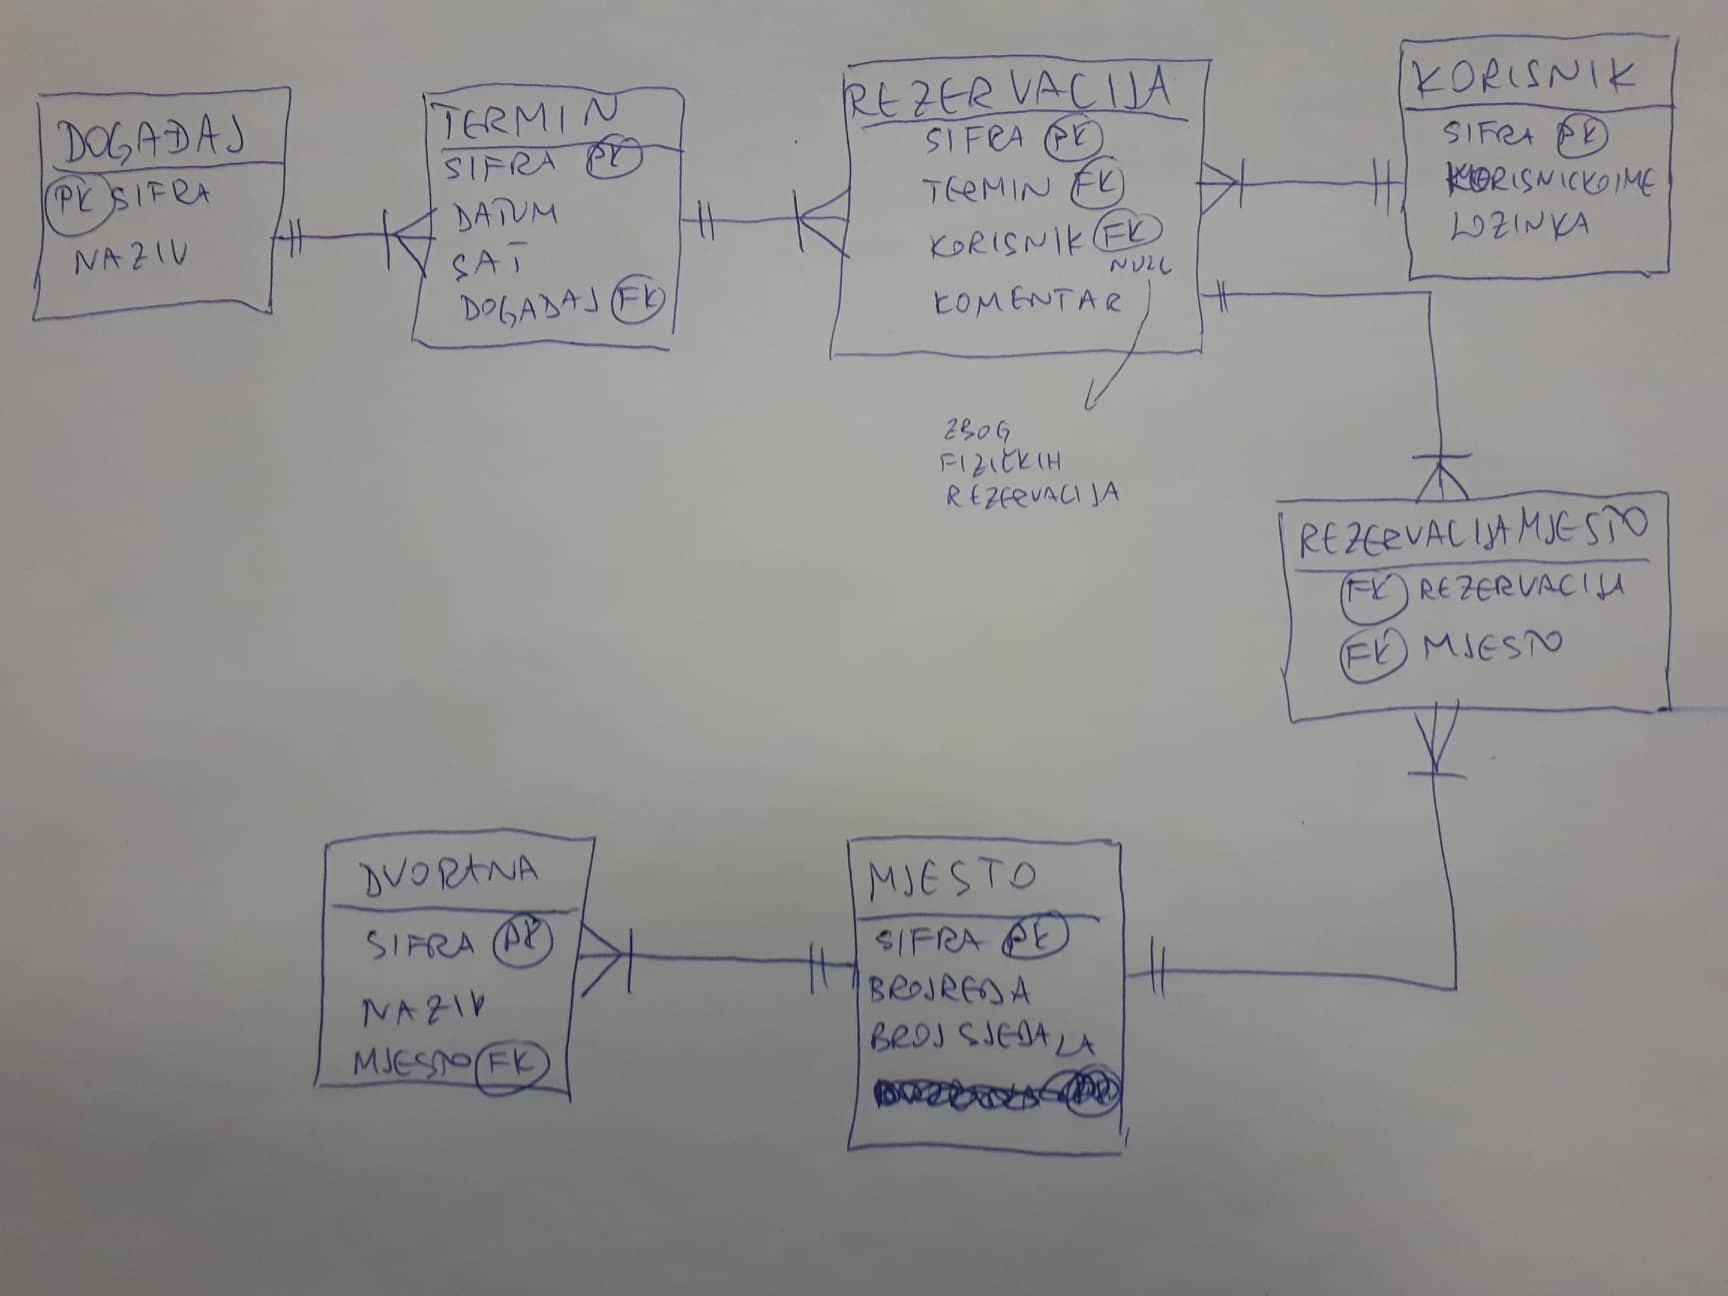 DOGAĐAJ
PK SIFRA
NAZIV
TERMIN
SIFRA PK
DATUM
SAT
DOGAĐAJ FK
REZERVACIJA
SIFRA PK
TERMIN FK
KORISNIK FK
NULL
KOMENTAR
ZBOG
FIZIČKIH
REZERVACIJA
KORISNIK
SIFRA PK
KORISNICKOIME
LOZINKA
REZERVACIJAMJESTO
FK REZERVACIJA
FK MJESTO
DVORANA
SIFRA PK
NAZIV
MJESTO FK
MJESTO
SIFRA PK
BROJREDA
BROJ SJEDALA